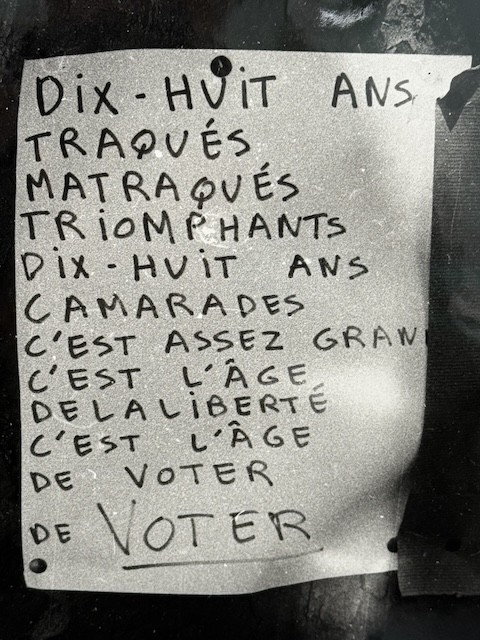 DiX-HUiT ANS
TRAQUÉS
MATRAQUÉS
TRiOMPHANTS
DiX-HUiT ANS
CAMARADES
C'EST ASSEZ GRAN
C'EST L'ÂGE
DE LA LiBERTÉ
C'EST L'ÂGE
DE VOTER
DE VOTER